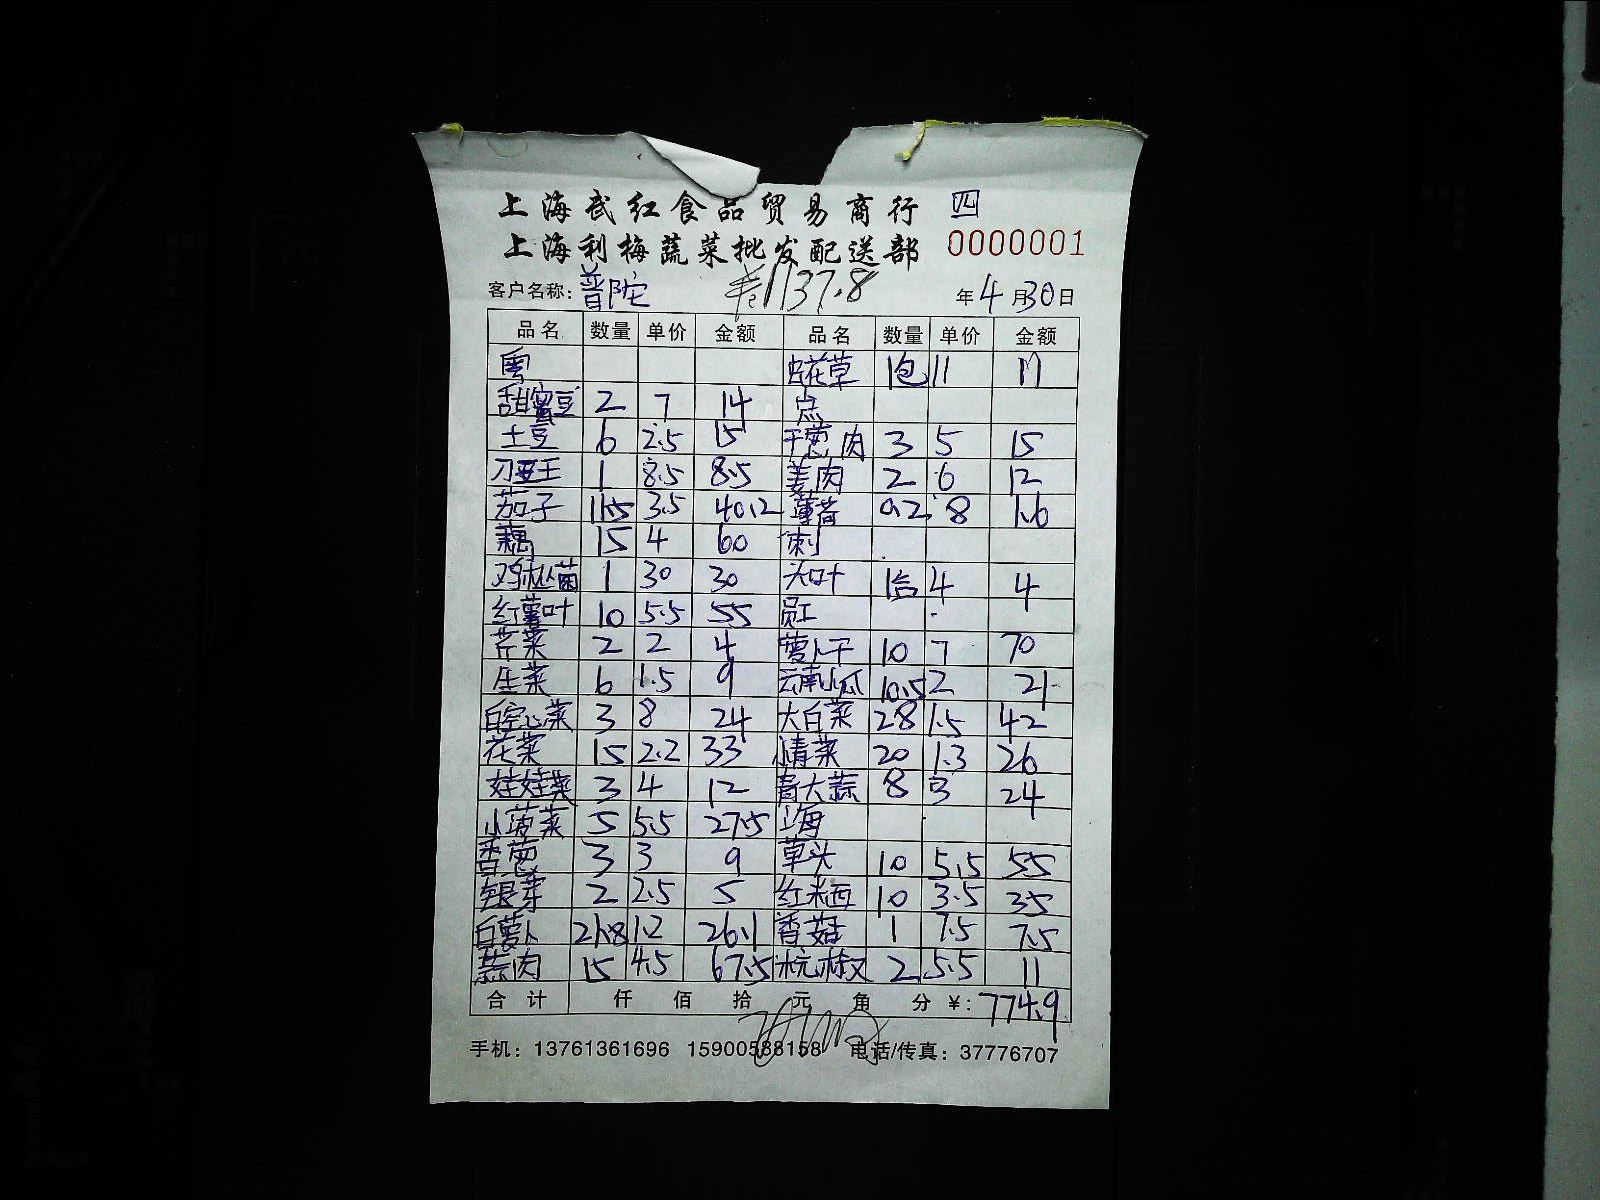 上海武红食品贸易商行 四
上海利梅蔬菜批发配送部 0000001
客户名称：普陀 1137.8 年4月30日
品名 数量 单价 金额 品名 数量 单价 金额
粤 虫花草 1包 11 11
甜蜜豆 2 7 14 点
土豆 6 2.5 15 干葱肉 3 5 15
刀豆王 1 8.5 8.5 姜肉 2 6 12
茄子 11.5 3.5 40.2 薄荷 0.2 8 1.6
藕 15 4 60 刺
鸡枞菌 1 30 30 大叶 1合 4 4
红薯叶 10 5.5 55 员工
芹菜 2 2 4 萝卜干 10 7 70
生菜 6 1.5 9 云南小瓜 10.5 2 21
白空心菜 3 8 24 大白菜 28 1.5 42
花菜 15 2.2 33 小青菜 20 1.3 26
娃娃菜 3 4 12 青大蒜 8 3 24
小菠菜 5 5.5 27.5 上海
香葱 3 3 9 草头 10 5.5 55
银芽 2 2.5 5 红米西 10 3.5 35
白萝卜 21.8 1.2 26.1 香菇 1 7.5 7.5
蒜肉 15 4.5 67.5 杭椒 2 5.5 11
合计 仟 佰 拾 元 角 分 ¥: 774.9
手机：13761361696 15900588158 电话/传真：37776707